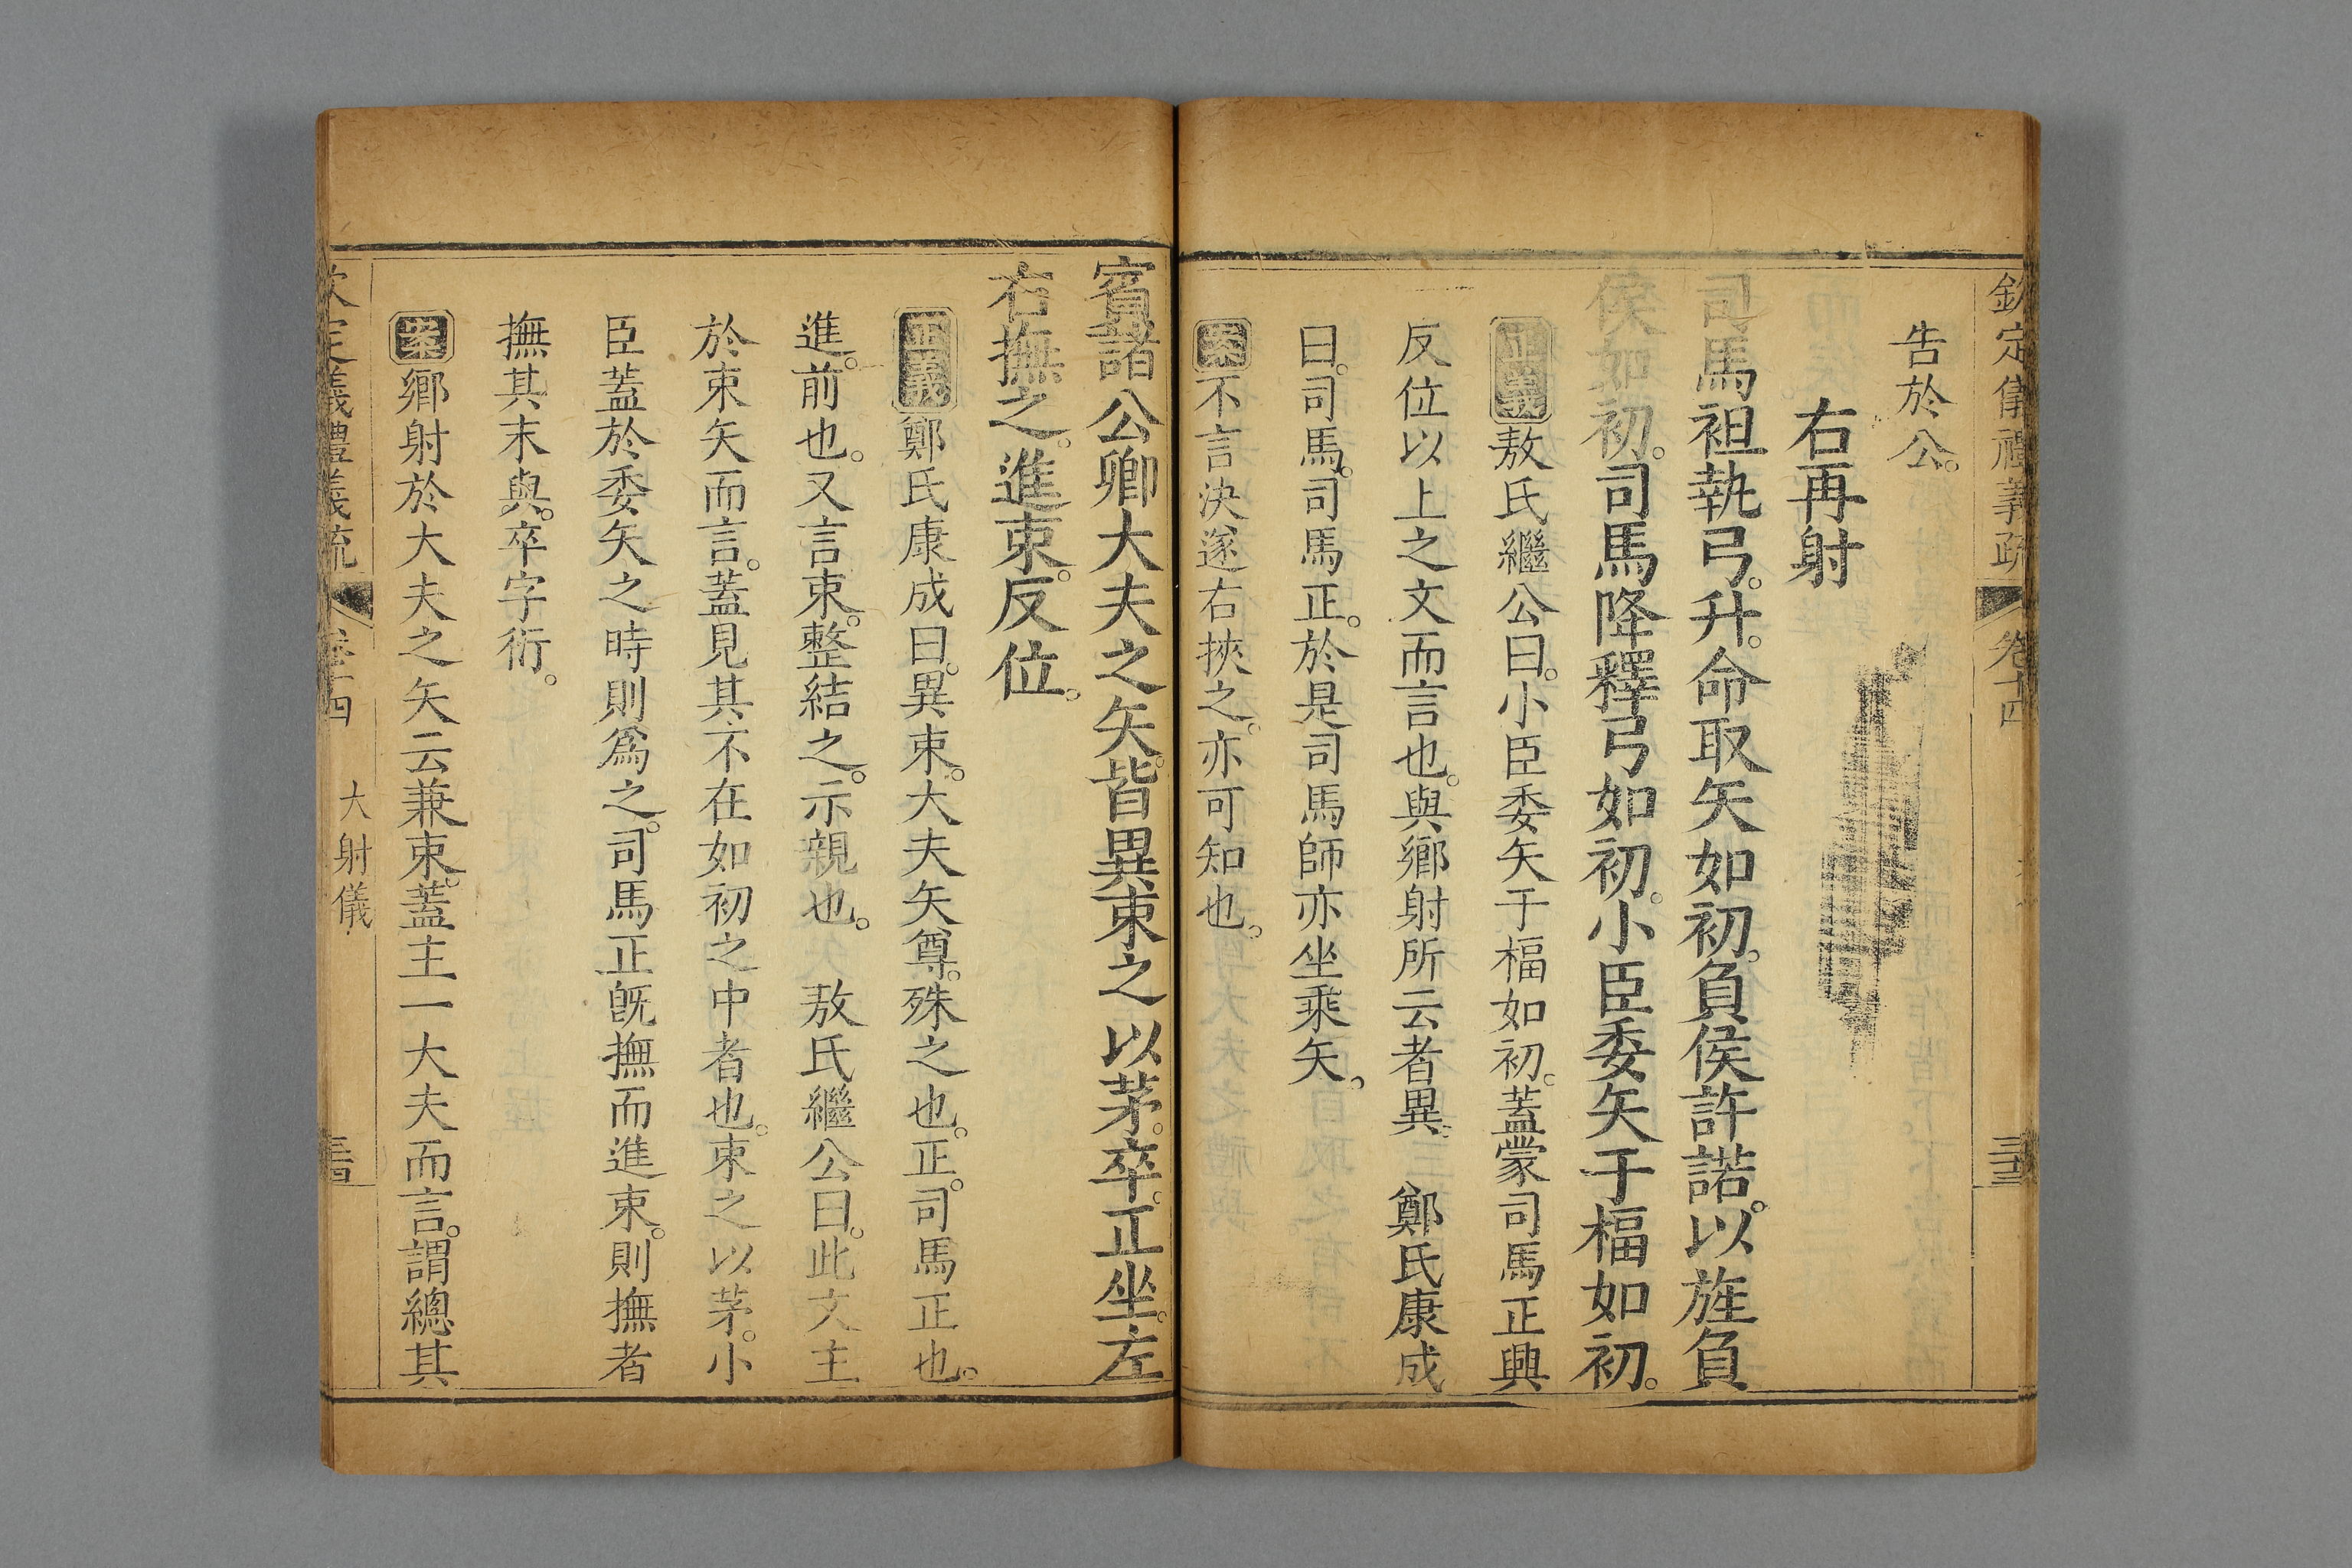 欽定儀禮義疏 卷十四 三十三
告於公。
右再射
司馬袒執弓。升。命取矢如初。負侯許諾。以旌負
侯如初。司馬降釋弓如初。小臣委矢于楅如初。
正義敖氏繼公曰。小臣委矢于楅如初。蓋蒙司馬正與
反位以上之文而言也。與鄉射所云者異。 鄭氏康成
曰。司馬。司馬正。於是司馬師亦坐乘矢。
案不言決遂右挾之。亦可知也。
賓諸公卿大夫之矢。皆異束之以茅。卒。正坐。左
右撫之。進束。反位。
正義鄭氏康成曰。異束。大夫矢尊。殊之也。正。司馬正也。
進。前也。又言束。整結之。示親也。 敖氏繼公曰。此文主
於束矢而言。蓋見其不在如初之中者也。束之以茅。小
臣蓋於委矢之時則爲之。司馬正既撫而進束。則撫者
撫其末與。卒字衍。
案鄉射於大夫之矢云兼束。蓋主一大夫而言。謂總其
欽定儀禮義疏 卷十四 大射儀 三十四